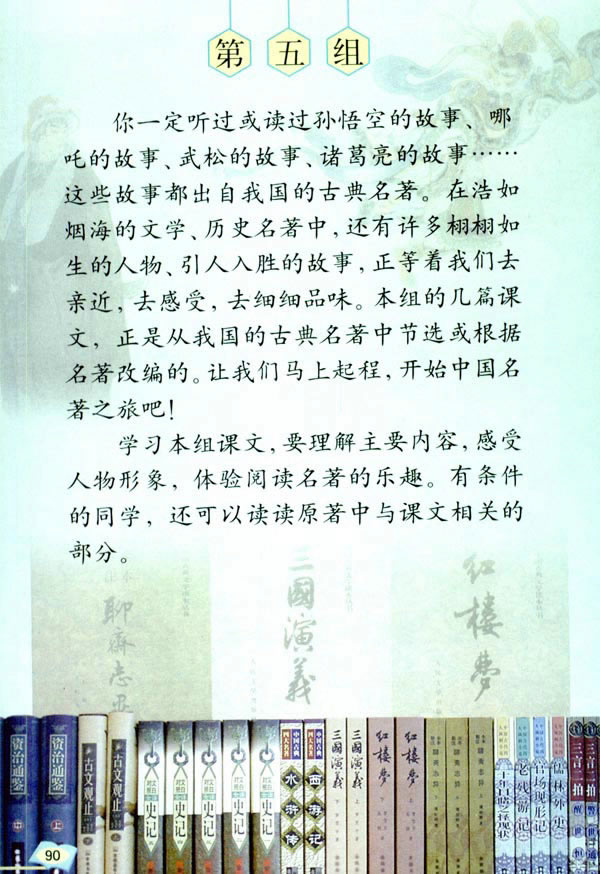 第五组
你一定听过或读过孙悟空的故事、哪
吒的故事、武松的故事、诸葛亮的故事……
这些故事都出自我国的古典名著。在浩如
烟海的文学、历史名著中，还有许多栩栩如
生的人物、引人入胜的故事，正等着我们去
亲近，去感受，去细细品味。本组的几篇课
文，正是从我国的古典名著中节选或根据
名著改编的。让我们马上起程，开始中国名
著之旅吧！
学习本组课文，要理解主要内容，感受
人物形象，体验阅读名著的乐趣。有条件
的同学，还可以读读原著中与课文相关的
部分。
聊斋志异
三國演義
红楼夢
资治通鉴 中
资治通鉴 上
古文观止 下
古文观止 上
史记
史记
史记
史记
史记
中国古典四大名著 水浒传
中国古典四大名著 西游记
三國演義 下
三國演義 上
红楼夢 下
红楼夢 上
老残游记
官场现形记
儒林外史
三言二拍 醒世恒
三言二拍
90